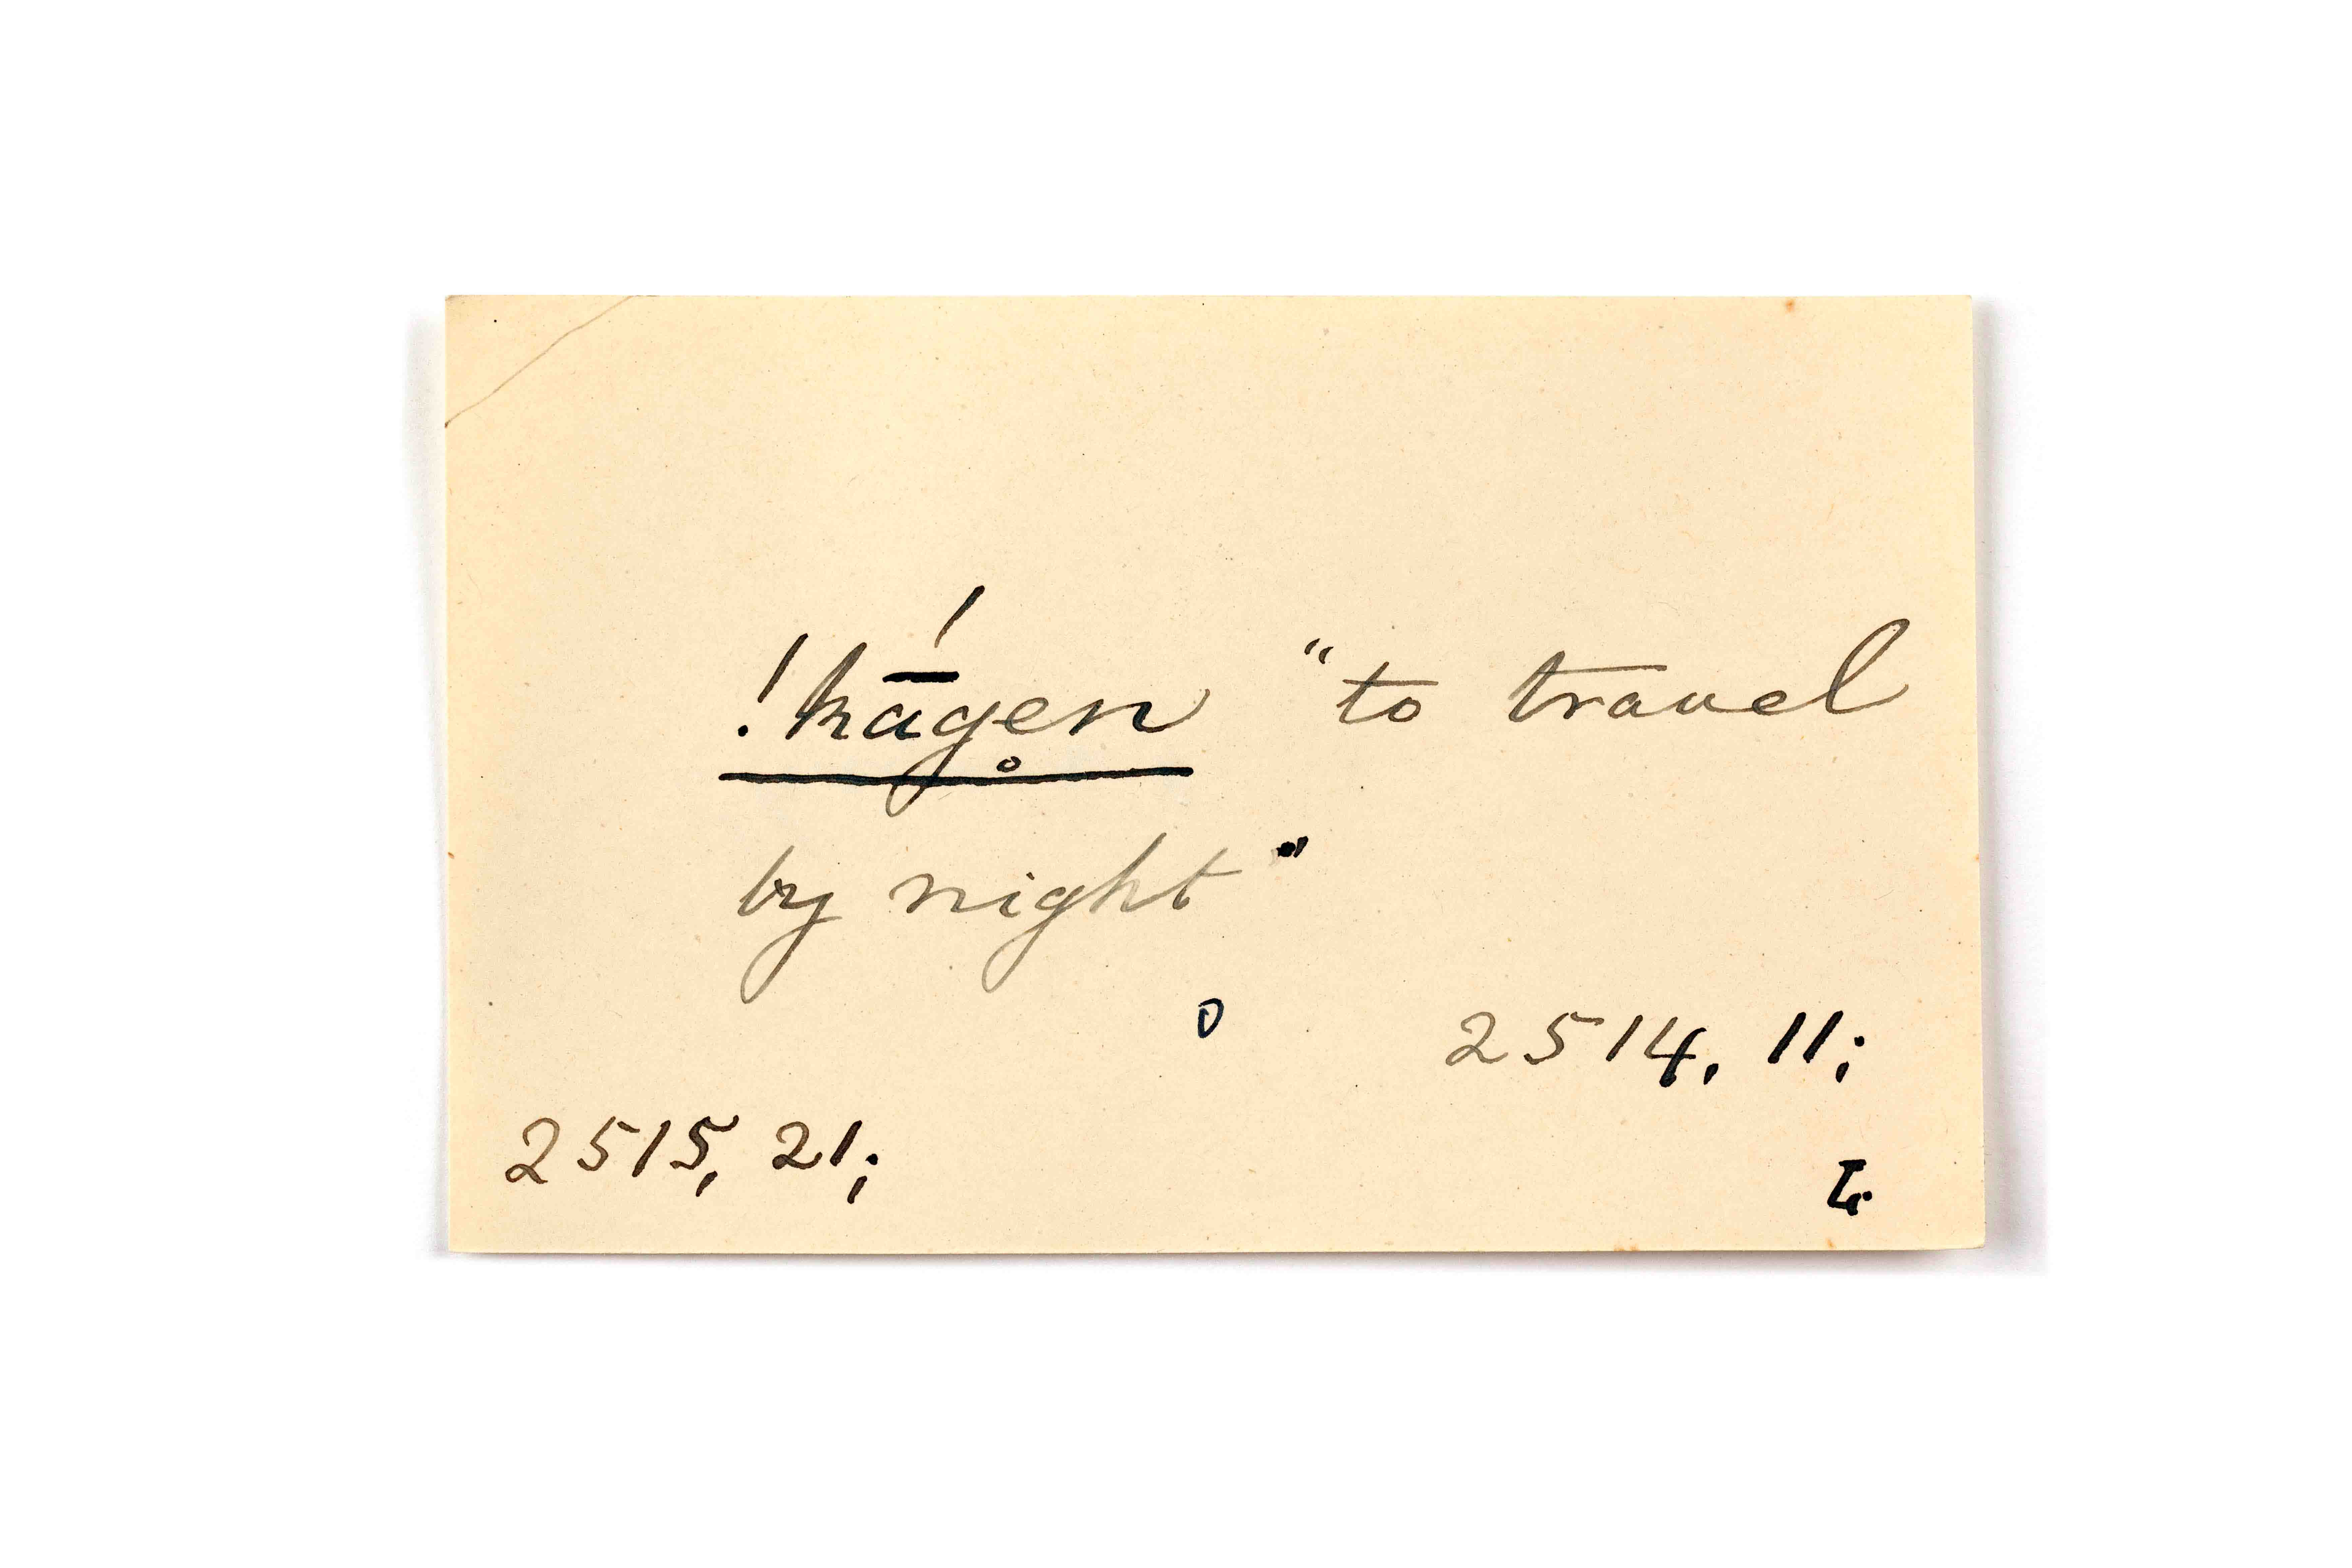 !kā́gen̥ "to travel
by night"
0 2514, 11;
2515, 21;
L.